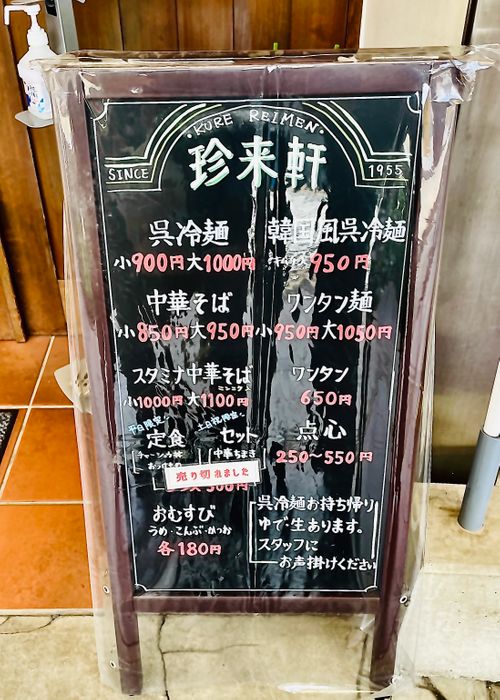 KURE REIMEN
珍来軒
SINCE 1955
呉冷麺
小900円大1000円
韓国風呉冷麺
950円
中華そば
小850円大950円
ワンタン麺
小950円大1050円
スタミナ中華そば
ニンニク入
小1000円大1100円
ワンタン
650円
平日限定
定食
チャーシュー丼
土日祝限定
セット
中華ちまき
点心
250〜550円
売り切れました
おむすび
うめ・こんぶ・かつお
各180円
呉冷麺お持ち帰り
ゆで生あります。
スタッフに
お声掛けください